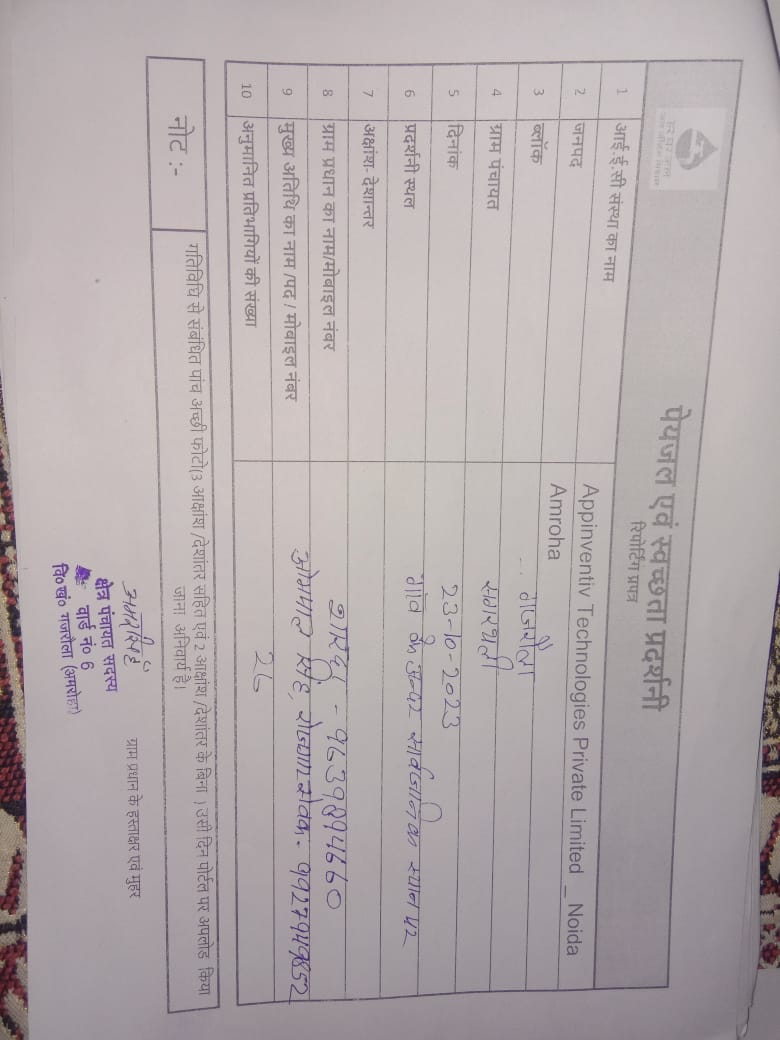 हर घर जल
जल जीवन मिशन
पेयजल एवं स्वच्छता प्रदर्शनी
रिपोर्टिंग प्रपत्र
1 आई.ई.सी संस्था का नाम Appinventiv Technologies Private Limited _ Noida
2 जनपद Amroha
3 ब्लॉक गजरौला
4 ग्राम पंचायत
5 दिनांक 23-10-2023
6 प्रदर्शनी स्थल गाँव के अन्दर सार्वजनिक स्थान पर
7 अक्षांश- देशान्तर
8 ग्राम प्रधान का नाम/मोबाइल नंबर - 9639894660
9 मुख्य अतिथि का नाम /पद / मोबाइल नंबर ओमपाल सिंह, रोजगार सेवक - 9927949852
10 अनुमानित प्रतिभागियों की संख्या 26
नोट :- गतिविधि से संबंधित पांच अच्छी फोटो(3 आक्षांश /देशांतर सहित एवं 2 आक्षांश /देशांतर के बिना ) उसी दिन पोर्टल पर अपलोड किया
जाना अनिवार्य है।
ग्राम प्रधान के हस्ताक्षर एवं मुहर
क्षेत्र पंचायत सदस्य
वार्ड नं० 6
वि०खं० गजरौला (अमरोहा)